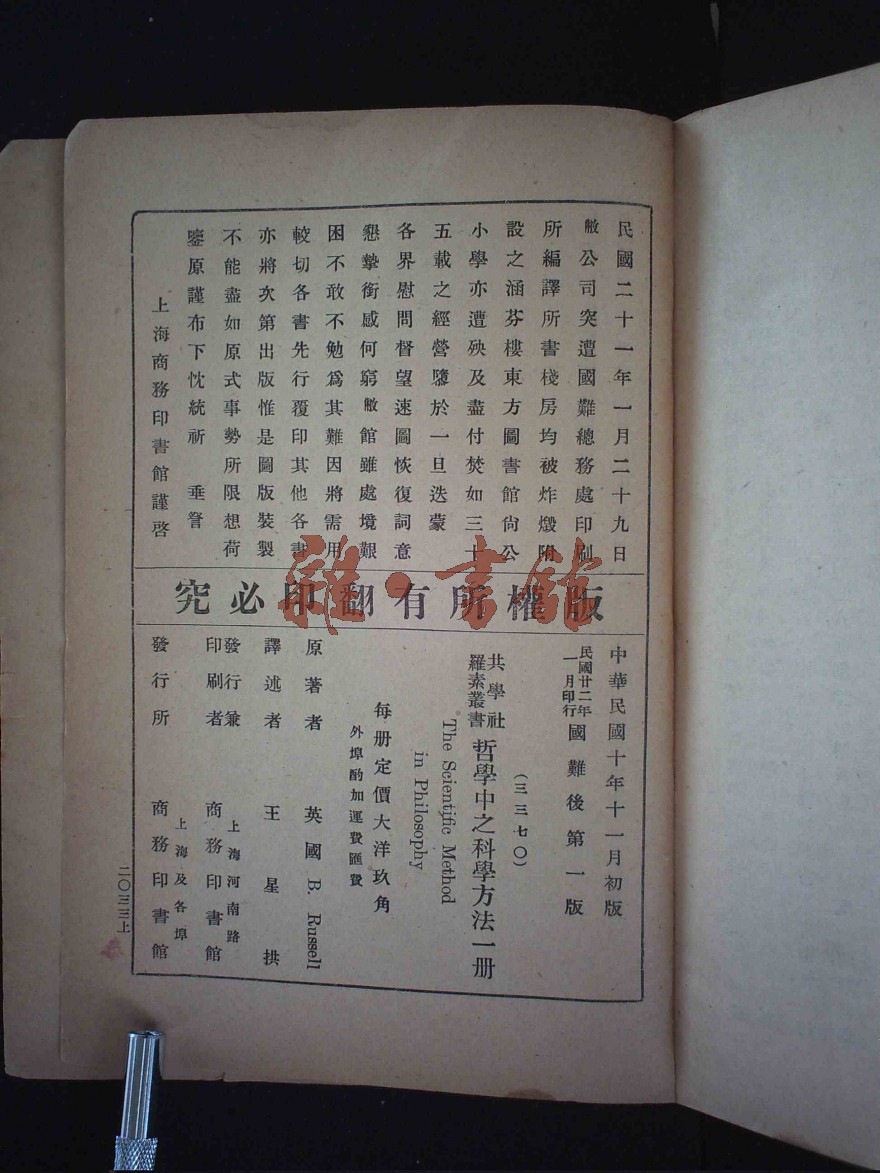 民國二十一年一月二十九日
敝公司突遭國難總務處印刷
所編譯所書棧房均被炸燬附
設之涵芬樓東方圖書館尚公
小學亦遭殃及盡付焚如三十
五載之經營隳於一旦迭蒙
各界慰問督望速圖恢復詞意
懇摯銜感何窮敝館雖處境艱
困不敢不勉爲其難因將需用
較切各書先行覆印其他各書
亦將次第出版惟是圖版裝製
不能盡如原式事勢所限想荷
鑒原謹布下忱統祈 垂詧
上海商務印書館謹啓
究必印翻有所權版
雜·書館
中華民國十年十一月初版
民國廿二年一月印行 國難後第一版
(三三七〇)
共學社羅素叢書 哲學中之科學方法一册
The Scientific Method
in Philosophy
每册定價大洋玖角
外埠酌加運費匯費
原著者 英國 B. Russell
譯述者 王星拱
發行兼印刷者 上海河南路 商務印書館
發行所 上海及各埠 商務印書館
二〇三三上